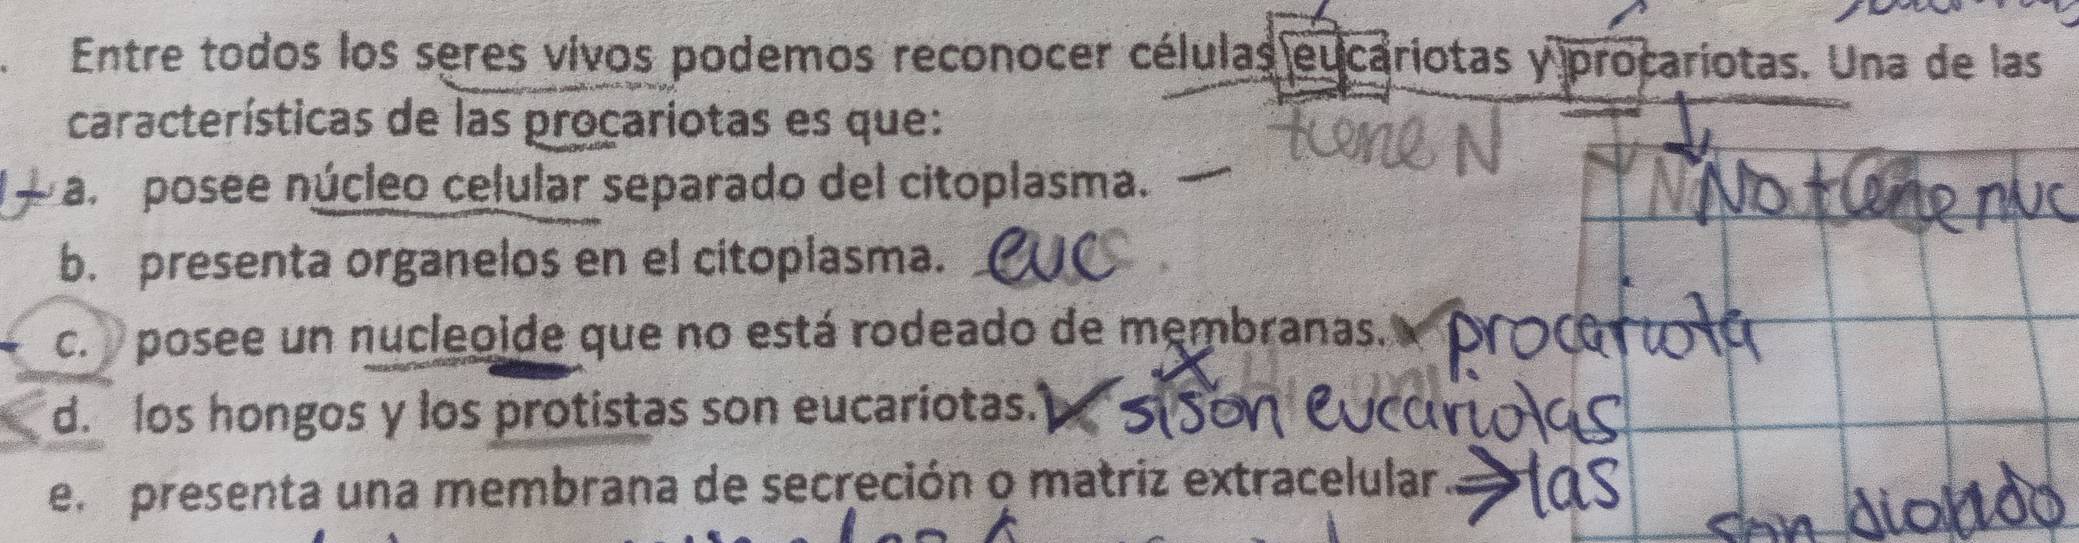 Entre todos los seres vivos podemos reconocer células eucariotas y procariotas. Una de las
características de las procariotas es que:
tiene N
No tiene nuc
a. posee núcleo celular separado del citoplasma.
b. presenta organelos en el citoplasma. euc
c. posee un nucleoide que no está rodeado de membranas. procariota
d. los hongos y los protistas son eucariotas. si son eucariotas
e. presenta una membrana de secreción o matriz extracelular. las
son